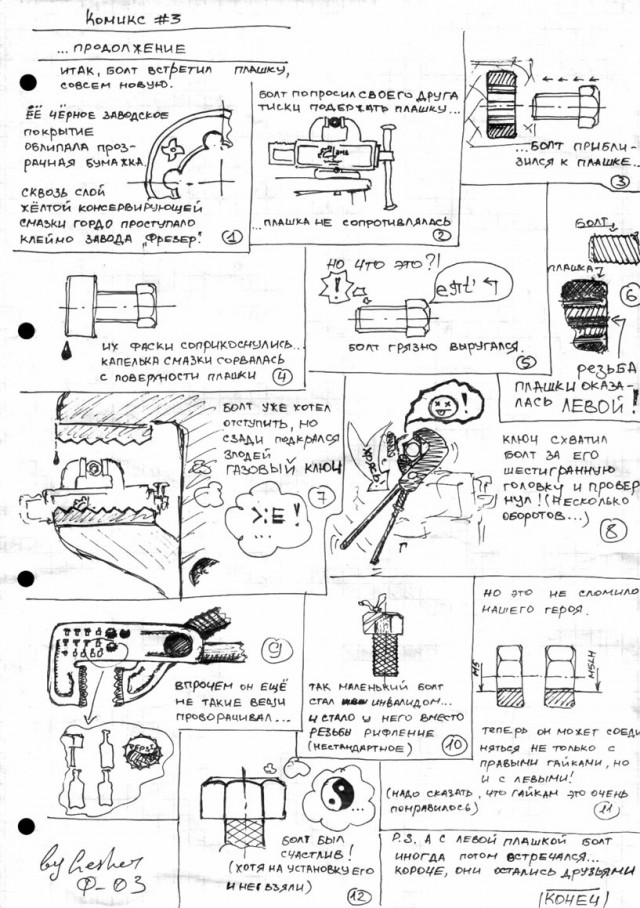 Комикс #3
...ПРОДОЛЖЕНИЕ
ИТАК, БОЛТ ВСТРЕТИЛ ПЛАШКУ,
СОВСЕМ НОВУЮ.
ЕЁ ЧЁРНОЕ ЗАВОДСКОЕ
ПОКРЫТИЕ
ОБЛИПАЛА ПРОЗ-
РАЧНАЯ БУМАЖКА.
СКВОЗЬ СЛОЙ
ЖЁЛТОЙ КОНСЕРВИРУЮЩЕЙ
СМАЗКИ ГОРДО ПРОСТУПАЛО
КЛЕЙМО ЗАВОДА „ФРЕЗЕР".
1
БОЛТ ПОПРОСИЛ СВОЕГО ДРУГА
ТИСКИ ПОДЕРЖАТЬ ПЛАШКУ...
...ПЛАШКА НЕ СОПРОТИВЛЯЛАСЬ
2
...БОЛТ ПРИБЛИ-
ЗИЛСЯ К ПЛАШКЕ...
3
ИХ ФАСКИ СОПРИКОСНУЛИСЬ...
КАПЕЛЬКА СМАЗКИ СОРВАЛАСЬ
С ПОВЕРХНОСТИ ПЛАШКИ
4
НО ЧТО ЭТО?!
!
БОЛТ ГРЯЗНО ВЫРУГАЛСЯ.
5
БОЛТ
ПЛАШКА
6
РЕЗЬБА
ПЛАШКИ ОКАЗА-
ЛАСЬ ЛЕВОЙ!
БОЛТ УЖЕ ХОТЕЛ
ОТСТУПИТЬ, НО
СЗАДИ ПОДКРАЛСЯ
ЗЛОДЕЙ
ГАЗОВЫЙ КЛЮЧ
7
!
КЛЮЧ СХВАТИЛ
БОЛТ ЗА ЕГО
ШЕСТИГРАННУЮ
ГОЛОВКУ И ПРОВЕР
НУЛ! (НЕСКОЛЬКО
ОБОРОТОВ...)
8
PEPSI
9
ВПРОЧЕМ ОН ЕЩЁ
НЕ ТАКИЕ ВЕЩИ
ПРОВОРАЧИВАЛ...
ТАК МАЛЕНЬКИЙ БОЛТ
СТАЛ ИНВАЛИДОМ...
И СТАЛО У НЕГО ВМЕСТО
РЕЗЬБЫ РИФЛЕНИЕ
(НЕСТАНДАРТНОЕ)
10
НО ЭТО НЕ СЛОМИЛО
НАШЕГО ГЕРОЯ.
M5
M5LH
ТЕПЕРЬ ОН МОЖЕТ СОЕДИ
НЯТЬСЯ НЕ ТОЛЬКО С
ПРАВЫМИ ГАЙКАМИ, НО
И С ЛЕВЫМИ!
(НАДО СКАЗАТЬ, ЧТО ГАЙКАМ ЭТО ОЧЕНЬ
ПОНРАВИЛОСЬ)
11
БОЛТ БЫЛ
СЧАСТЛИВ!
(ХОТЯ НА УСТАНОВКУ ЕГО
И НЕ ВЗЯЛИ)
12
P.S. А С ЛЕВОЙ ПЛАШКОЙ БОЛТ
ИНОГДА ПОТОМ ВСТРЕЧАЛСЯ...
КОРОЧЕ, ОНИ ОСТАЛИСЬ ДРУЗЬЯМИ
(КОНЕЦ)
by
Ф-03